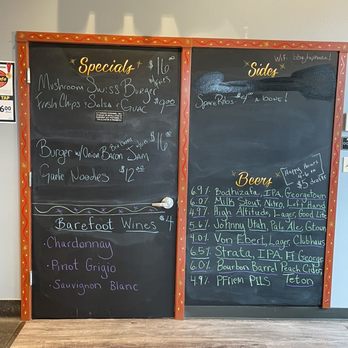 Specials
Mushroom Swiss Burger $16
w/fries
Fresh Chips Salsa & Guac $9.00
Burger w/Onion Bacon Jam $16
w/fries
Garlic Noodles $12
Barefoot Wines $4
Chardonnay
Pinot Grigio
Sauvignon Blanc
WiFi
Sides
Spare Ribs $4 a bone!
Beers
Happy Hour
$5 draft
6.9% Bodhizafa, IPA, Georgetown
6.0% Milk Stout, Nitro, Left Hand
4.9% High Altitude, Lager, Good Life
5.6% Johnny Utah, Pale Ale, Gtown
4.0% Von Ebert, Lager, Clubhaus
6.5% Strata, IPA, Ft George
6.0% Bourbon Barrel Peach Cider
4.9% Pfriem Pils Teton